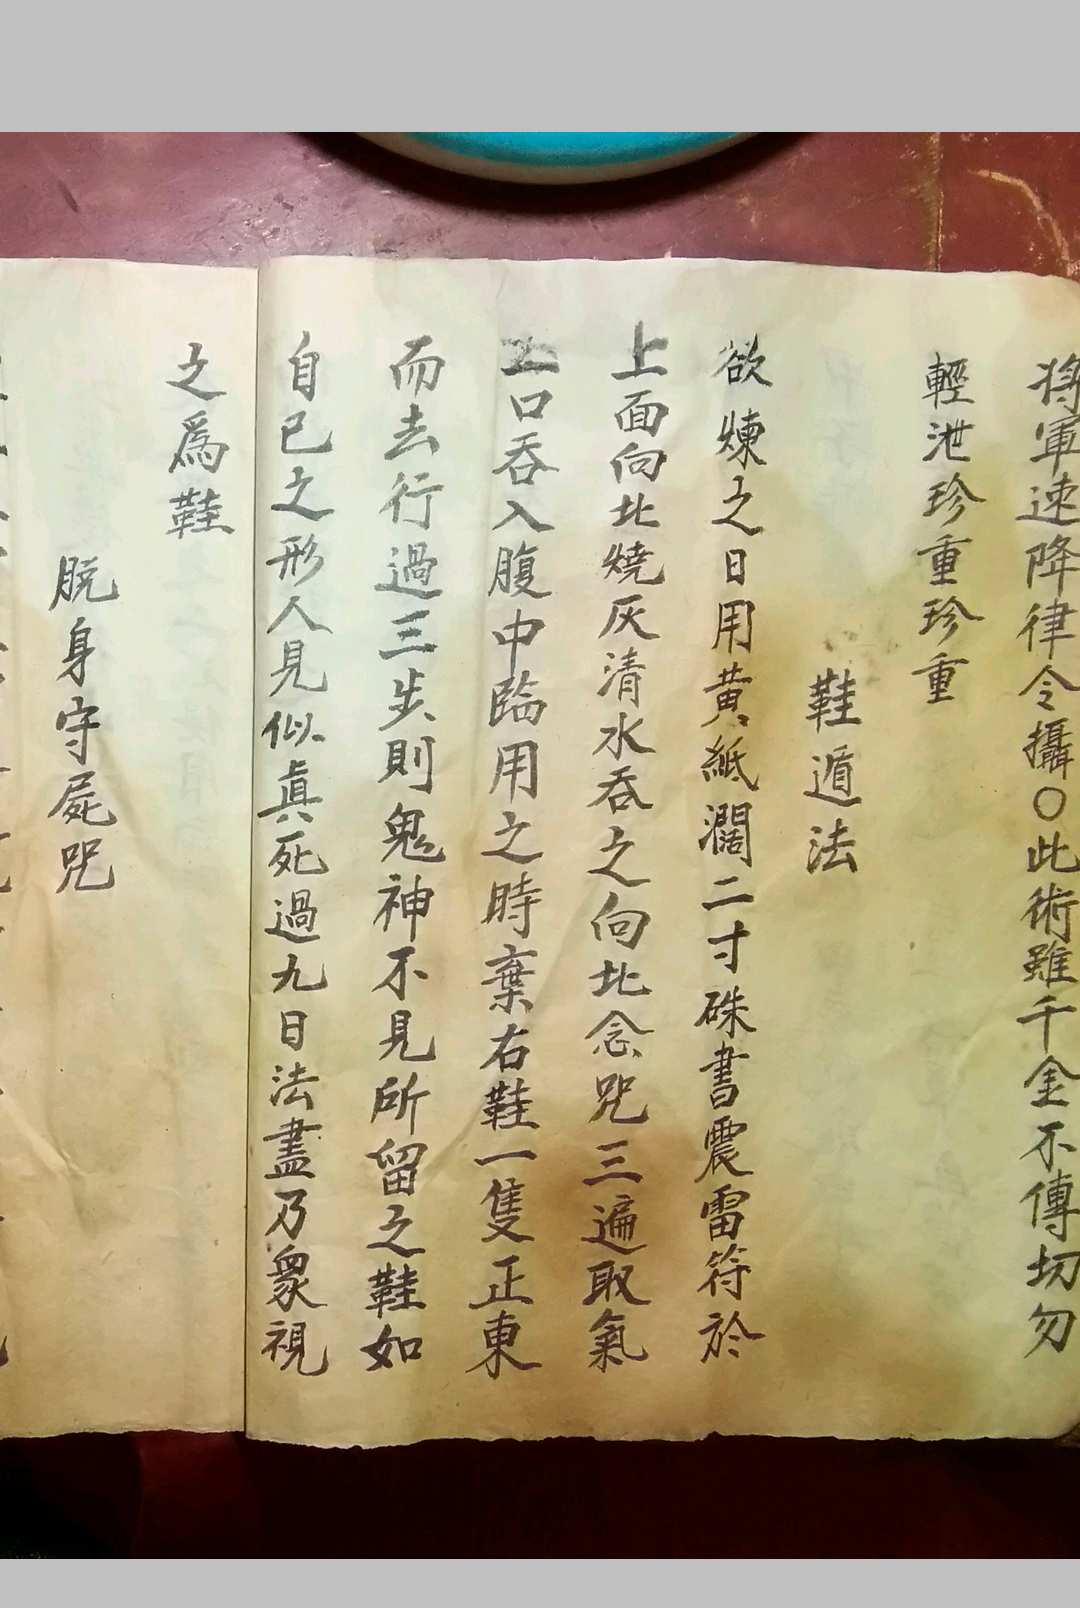 将軍速降律令攝〇此術雖千金不傳切勿
輕泄珍重珍重
鞋遁法
欲煉之日用黃紙濶二寸硃書震雷符於
上面向北燒灰清水吞之向北念咒三遍取氣
口吞入腹中臨用之時棄右鞋一隻正東
而去行過三步則鬼神不見所留之鞋如
自已之形人見似真死過九日法盡乃衆視
之為鞋
脱身守屍咒